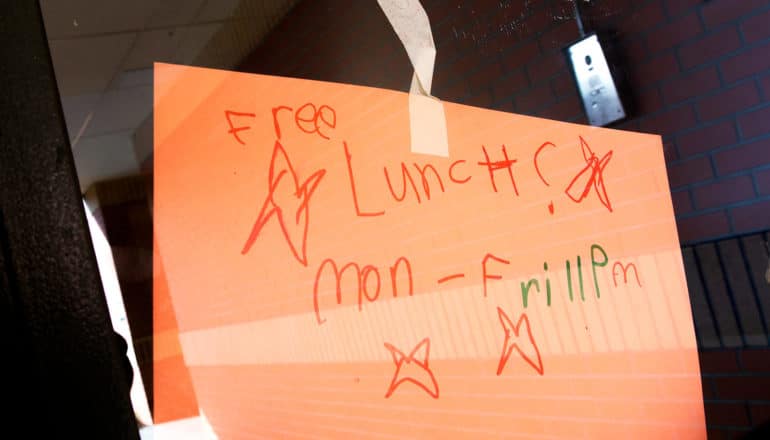 Free
LuncH?
mon - FrillPm